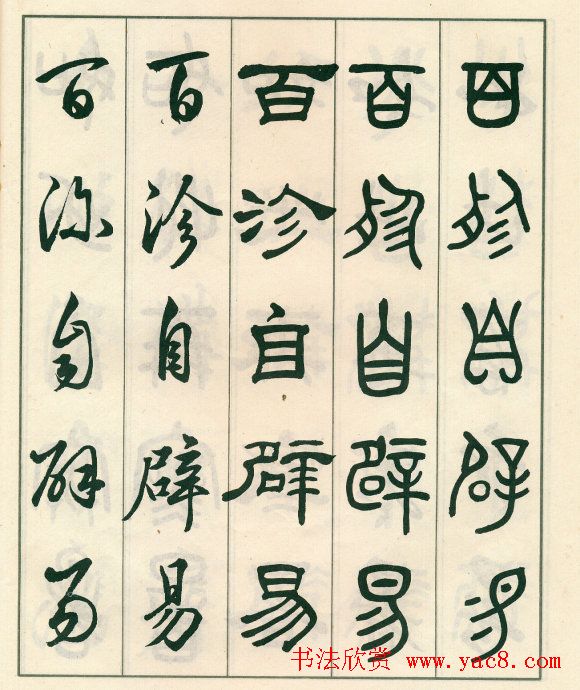 百沴自辟易
百沴自辟易
百沴自辟易
百沴自辟易
百沴自辟易
书法欣赏 www.yac8.com